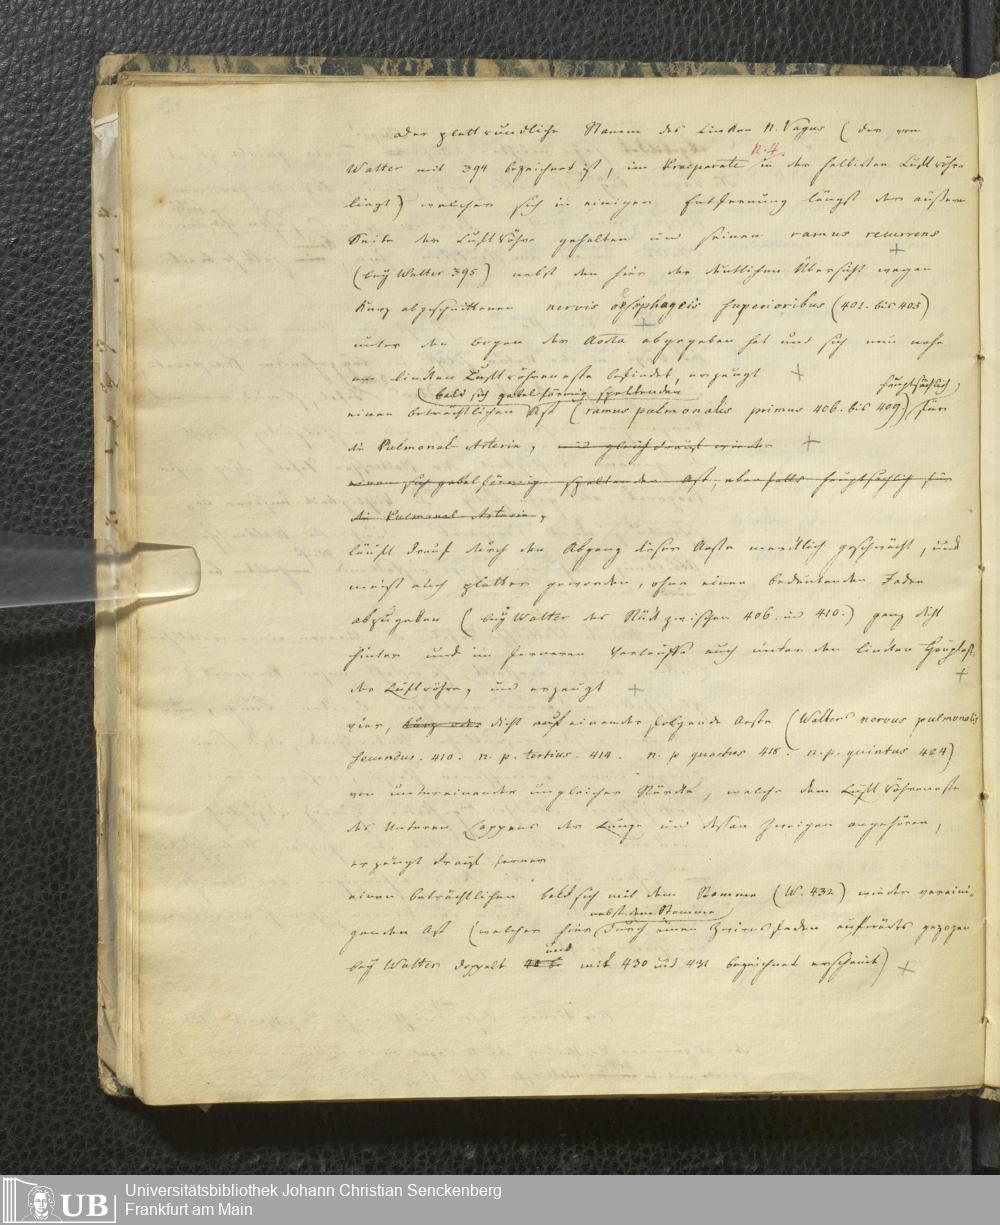 Der plattrundliche Stamm des linken N. Vagus (der von
N. 4.
Walter mit 394 bezeichnet ist, im Praeparate in der halbirten Luftröhre
liegt) welcher sich in einiger Entfernung längst der äußern
Seite der Luftröhre gehalten und seinen ramus recurrens
(bey Walter 395) nebst den hier der deutlichen Übersicht wegen
kurz abgeschnittenen nervis oesophageis superioribus (401. bis 405)
unter den Bogen der Aorta abgegeben hat und sich nun nahe
am linken Luftröhrenaste befindet, erzeugt
bald sich gabelförmig spaltenden
hauptsächlich,
einen beträchtlichen Ast (ramus pulmonalis primus 406. bis 409.) für
die Pulmonal-Arterie, und gleich drauf wieder
einen sich gabelförmig spaltenden Ast, ebenfalls hauptsächlich für
die Pulmonal-Arterie,
läuft drauf durch den Abgang dieser Aeste merklich geschwächt, und
meist auch platter geworden, ohne einen bedeutenden Faden
abzugeben (bey Walter das Stück zwischen 406. und 410.) ganz dicht
hinter und im ferneren Verlauffe auch unter den linken Hauptast
der Luftröhre, und erzeugt
vier, kurz oder dicht auf einander folgende Aeste (Walters nervus pulmonalis
secundus. 410. n. p. tertius. 414. n. p quartus 418. n. p. quintus 424)
von untereinander ungleicher Stärke, welche dem Luftröhrenaste
des Unteren Lappens der Lunge und dessen Zweigen angehören,
erzeugt drauf ferner
einen beträchtlichen bald sich mit dem Stamme (W. 432) wieder vereini-
nebst dem Stamme
genden Ast (welcher hier durch einen Zwirnsfaden aufwärts gezogen
und
bey Walter doppelt mit 430 und 431 bezeichnet erscheint)
UB
Universitätsbibliothek Johann Christian Senckenberg
Frankfurt am Main